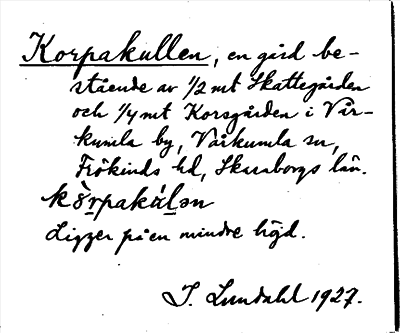 Korpakullen, en gård be-
stående av 1/2 mt Skattegården
och 1/4 mt Korsgården i Vår-
kumla by, Vårkumla sn,
Frökinds hd, Skaraborgs län.
Ligger på en mindre höjd.
J. Lundahl 1927.